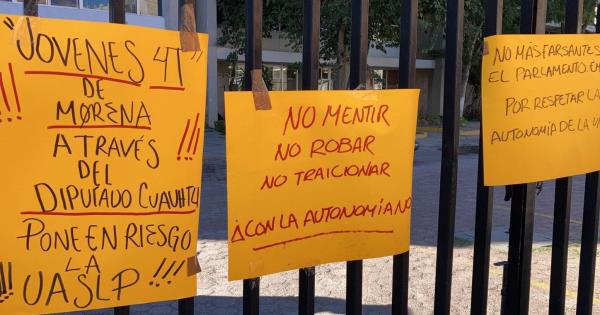 "JOVENES 4T"
DE
MORENA
!!!
!!!
ATRAVÉS
DEL
DIPUTADO CUAUHTLI
PONE EN RIESGO
LA
!!!
!!!
UASLP
NO MENTIR
NO ROBAR
NO TRAICIONAR
¡CON LA AUTONOMÍA NO
NO MAS FARSANTES
EL PARLAMENTO
POR RESPETAR LA
AUTONOMÍA DE LA